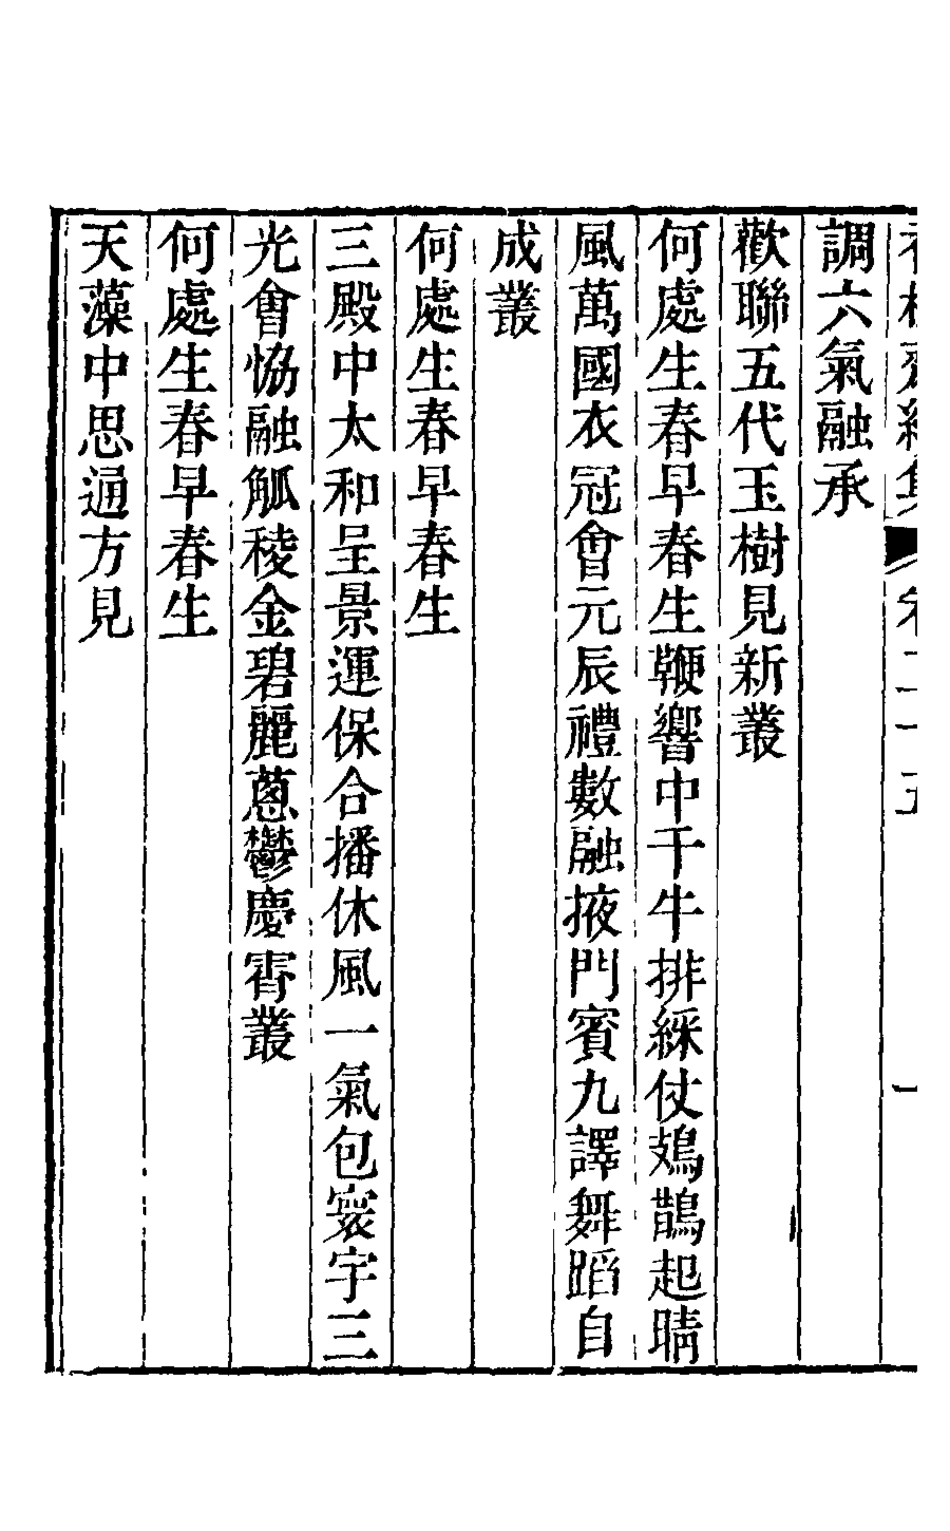 調六氣融承
歡聯五代玉樹見新叢
何處生春早春生鞭響中千牛排綵仗鳷鵲起晴
風萬國衣冠會元辰禮數融掖門賓九譯舞蹈自
成叢
何處生春早春生
三殿中太和呈景運保合播休風一氣包寰宇三
光會恊融觚稜金碧麗蔥鬱慶霄叢
何處生春早春生
天藻中思通方見